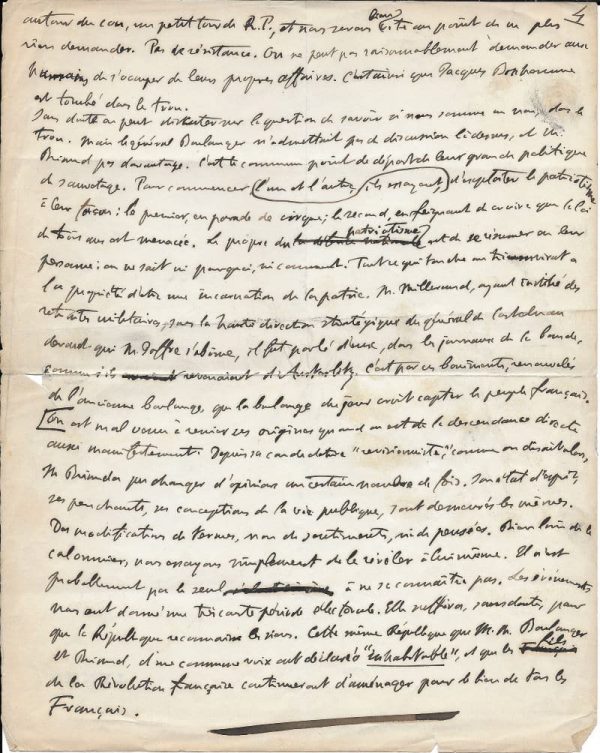 4
autour du cou, un petit tour de R.P., et nous serons à ce point de ne plus
rien demander. Pas de résistance. On ne peut pas raisonnablement demander aux
humains de s'occuper de leurs propres affaires. C'est ainsi que Jacques Bonhomme
est tombé dans le trou.
Sans doute on peut discuter sur la question de savoir si nous sommes ou non, dans le
trou. Mais le général Boulanger n'admettait pas de discussion là-dessus, et M.
Briand pas davantage. C'est le commun point de départ de leur grande politique
de sauvetage. Pour commencer l'un et l'autre, ils essayent, d'exploiter le patriotisme
à leur façon : le premier, en parade de cirque; le second, en feignant de croire que la loi
de trois ans est menacée. Le propre du patriotisme est de se résumer en leur
personne : on ne sait ni pourquoi, ni comment. Tout ce qui touche au triumvirat a
la propriété d'être une incarnation de la patrie. M. Millerand, ayant rétabli des
retraites militaires, sous la haute direction stratégique du général de Castelnau
devant qui M. Joffre s'abîme, il fut parlé d'eux, dans les journaux de la bande,
comme s'ils revenaient d'Austerlitz. C'est par ces boniments, renouvelés
de l'ancienne boulange, que la boulange du jour croit capter le peuple français.
On est mal venu à renier ses origines quand on est de la descendance directe
aussi manifestement. Depuis sa candidature "revisionniste", comme on disait alors,
M. Briand a pu changer d'opinions un certain nombre de fois. Son état d'esprit,
ses penchants, ses conceptions de la vie publique, sont demeurés les mêmes.
Des modifications de termes, non de sentiments, ni de pensées. Bien loin de le
calomnier, nous essayons simplement de le révéler à lui-même. Il n'est
probablement pas le seul à ne se connaître pas. Les événements
nous ont donné une très courte période électorale. Elle suffira, sans doute, pour
que la République reconnaisse les siens. Cette même République que M.M. Boulanger
et Briand, d'une commune voix ont déclarée "inhabitable", et que les fils
de la Révolution française continueront d'aménager pour le bien de tous les
Français.